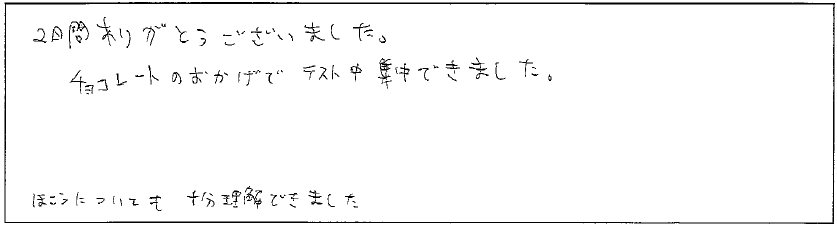 2日間ありがとうございました。
チョコレートのおかげで テスト中 集中できました。
ほこうについても 十分理解できました